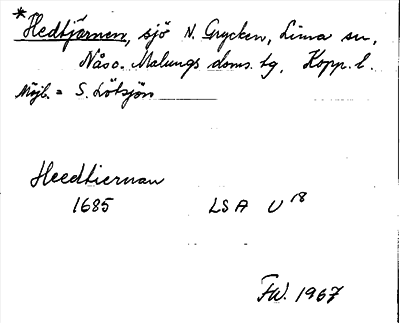 *Hedtjärnen, sjö N. Grycken, Lima sn,
Näso. Malungs doms. tg, Kopp. l.
Möjl. = S. Lötsjön
Heedtiernan
1685 LSA U 18
FW. 1967